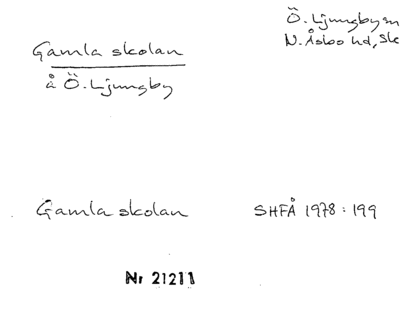 Gamla skolan
å Ö. Ljungby
Ö. Ljungby sn
N. Åsbo hd, Sk
Gamla skolan SHFÅ 1978: 199
Nr 21211